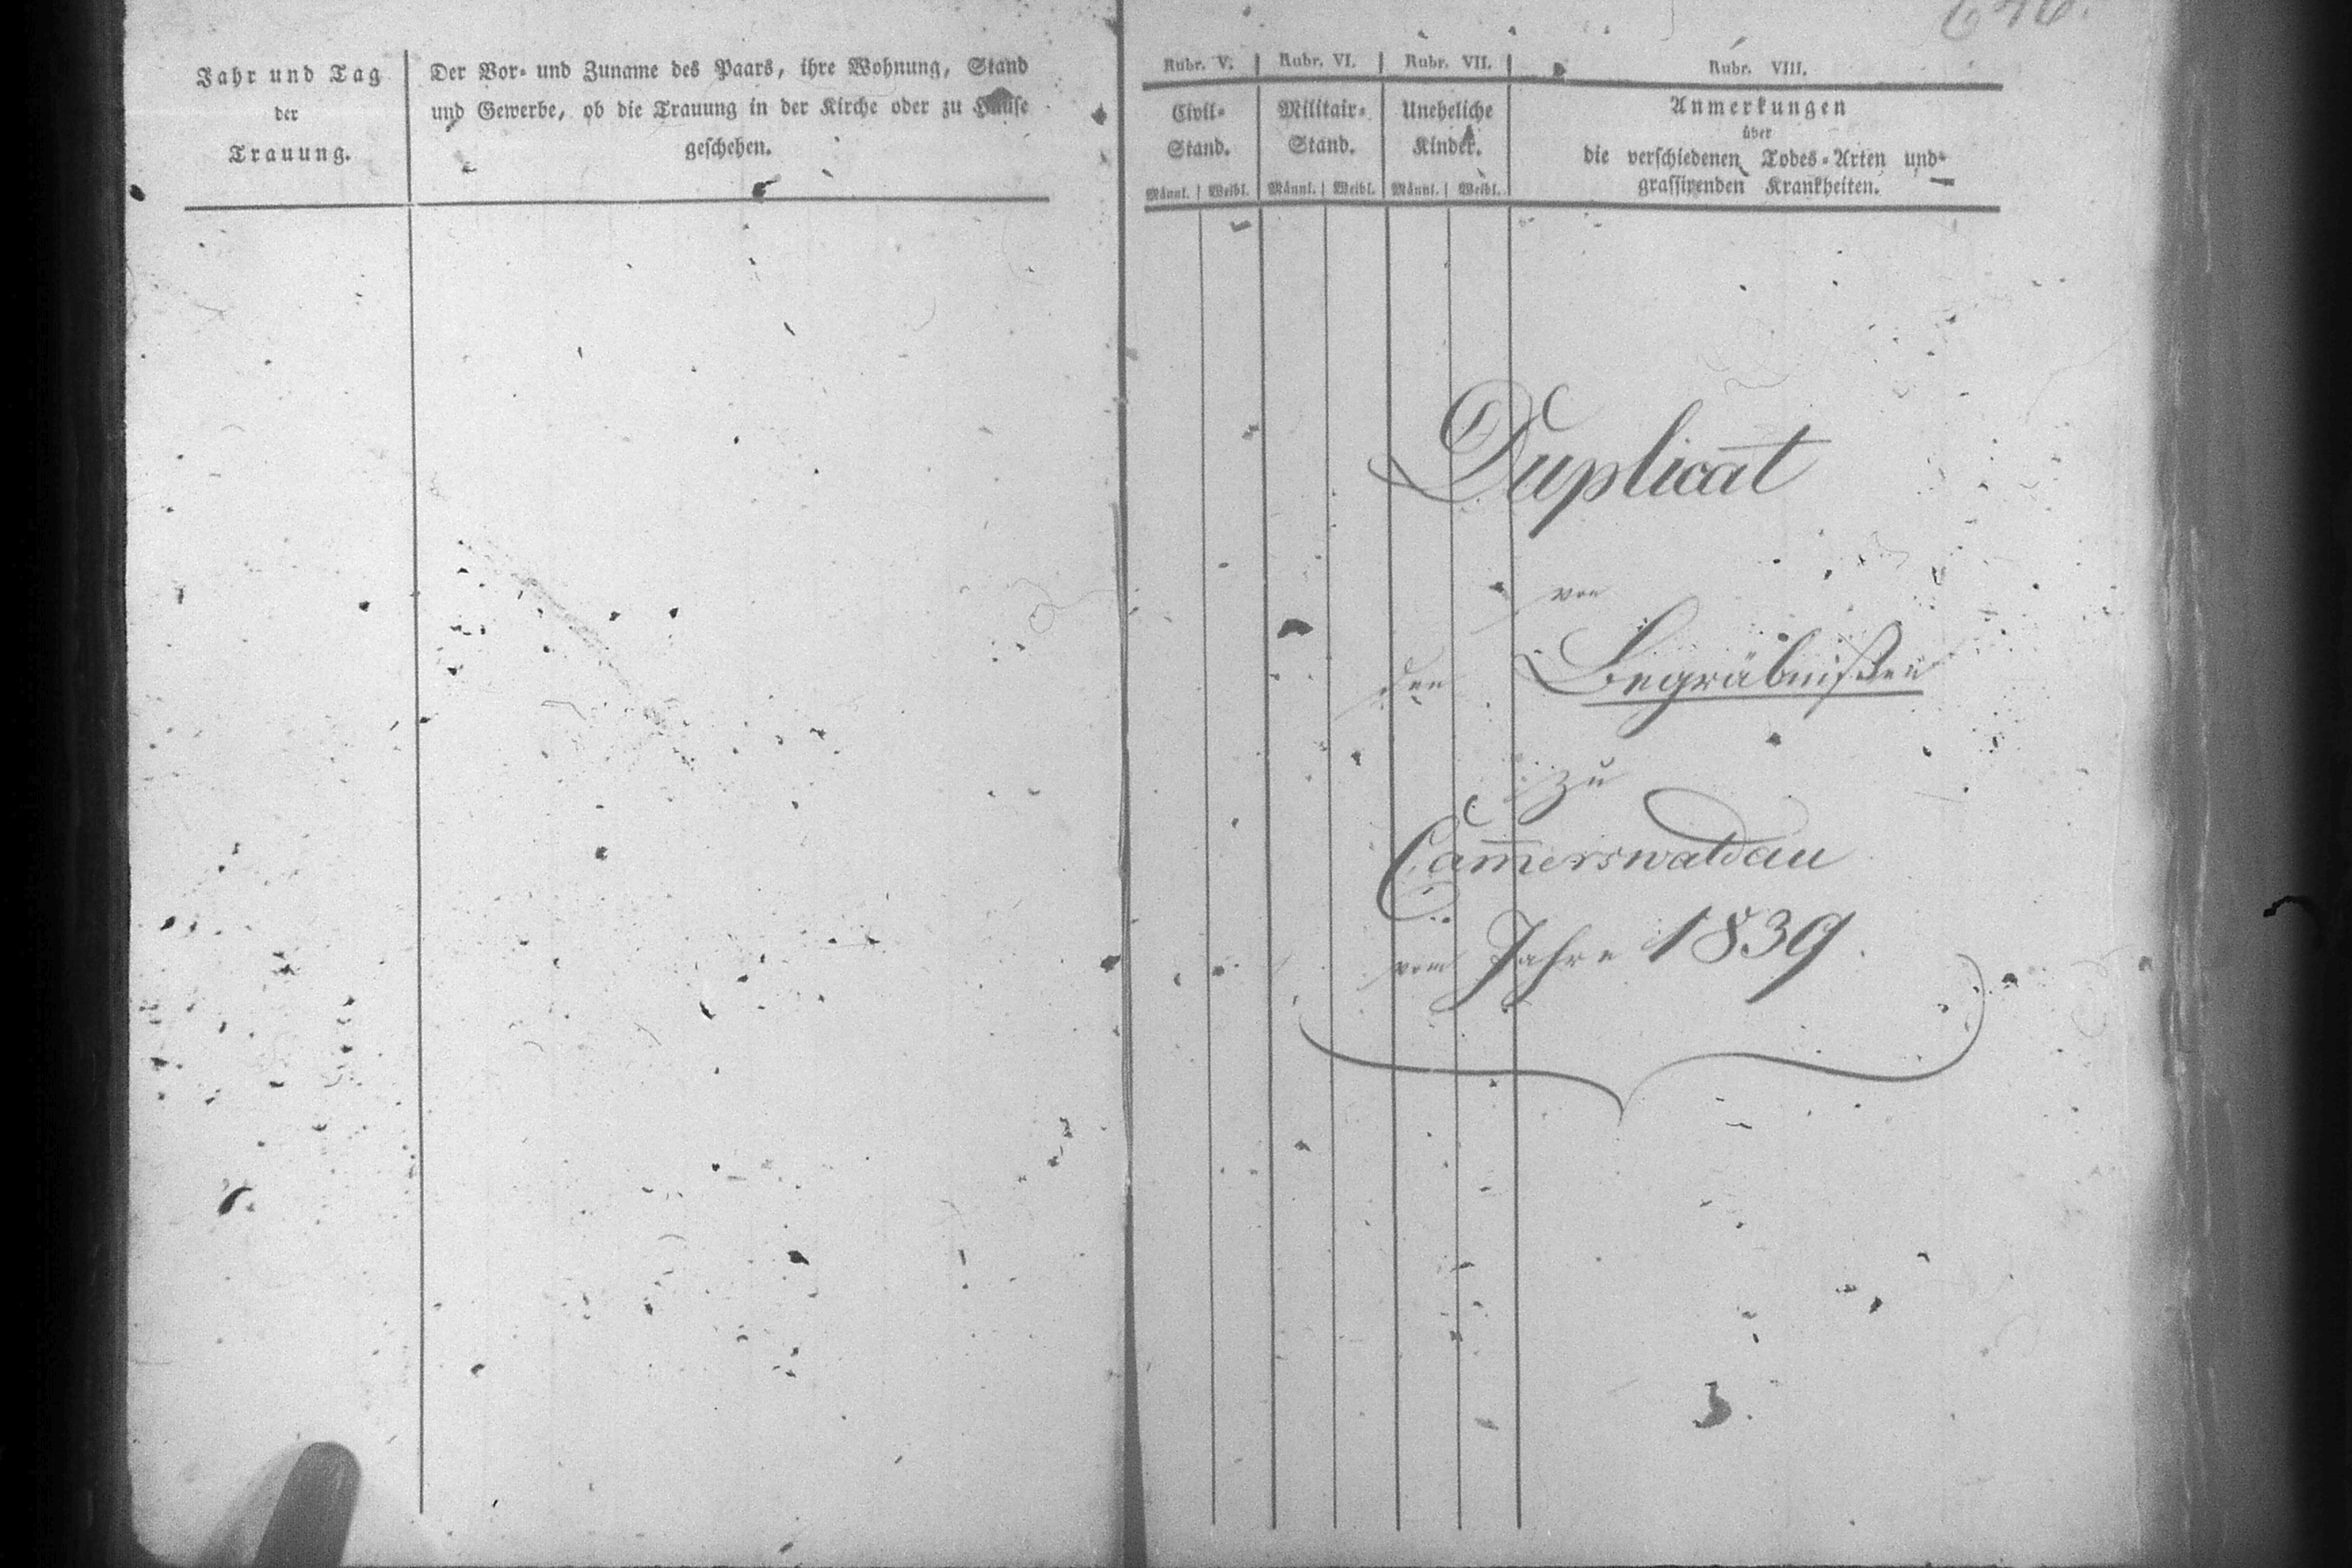 Jahr und Tag
der
Trauung.
Der Vor- und Zuname des Paars, ihre Wohnung, Stand
und Gewerbe, ob die Trauung in der Kirche oder zu Hause
geschehen.
Rubr. V. Rubr. VI. Rubr. VII. Rubr. VIII.
Civil-
Stand.
Militair-
Stand.
Uneheliche
Kinder.
Anmerkungen
über
die verschiedenen Todes-Arten und
grassirenden Krankheiten.
Männl. Weibl. Männl. Weibl. Männl. Weibl.
Duplicat
von
den Begräbnißen
zu
Cam̅erswaldau
vom Jahre 1839.